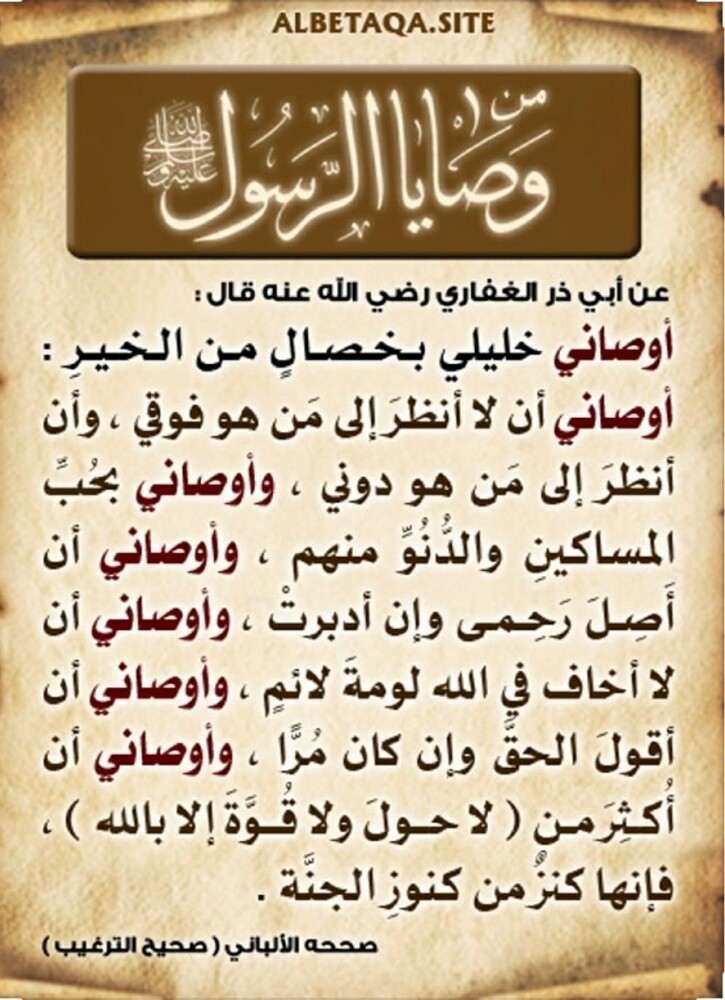 ALBETAQA.SITE
من وصايا الرسول صلى الله عليه وسلم
عن أبي ذر الغفاري رضي الله عنه قال :
أوصاني خليلي بخصالٍ من الخيرِ :
أوصاني أن لا أنظرَ إلى مَن هو فوقي ، وأن
أنظرَ إلى مَن هو دوني ، وأوصاني بحُبِّ
المساكينِ والدُّنُوِّ منهم ، وأوصاني أن
أَصِلَ رَحِمى وإن أدبرتْ ، وأوصاني أن
لا أخاف في الله لومةَ لائمٍ ، وأوصاني أن
أقولَ الحقَّ وإن كان مُرًّا ، وأوصاني أن
أُكثِرَ من ( لا حولَ ولا قُوَّةَ إلا بالله ) ،
فإنها كنزٌ من كنوزِ الجنَّة .
صححه الألباني ( صحيح الترغيب )